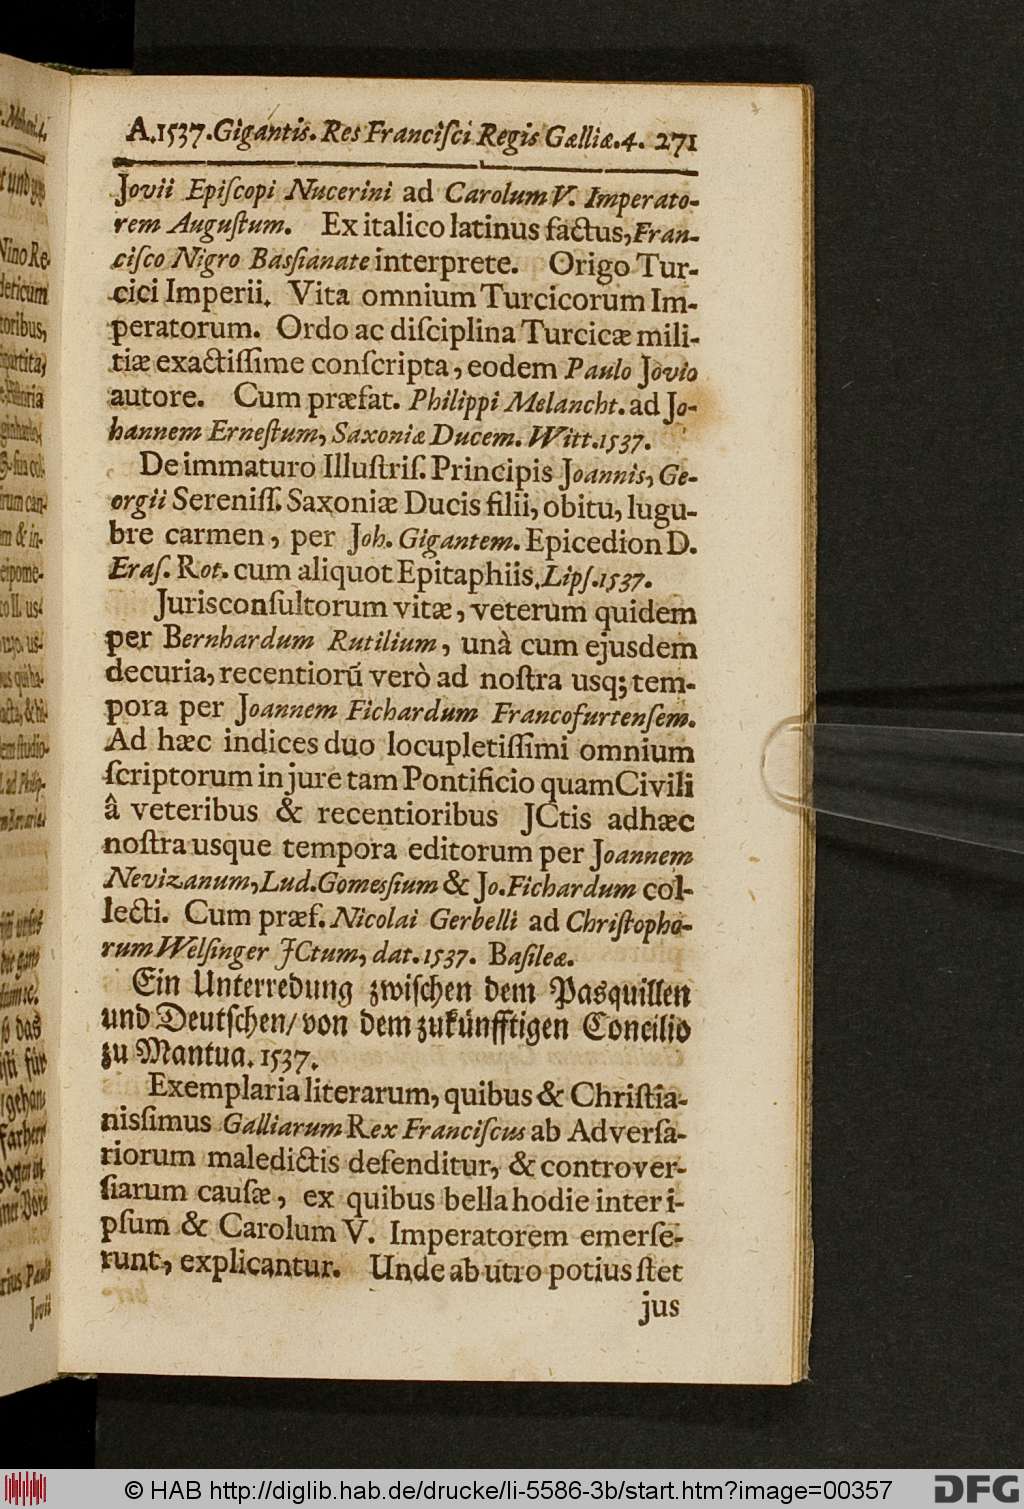 A.1537. Gigantis. Res Franciſci Regis Galliæ. 4. 271
Jovii Epiſcopi Nucerini ad Carolum V. Imperato-
rem Auguſtum. Ex italico latinus factus, Fran-
ciſco Nigro Baſsianate interprete. Origo Tur-
cici Imperii. Vita omnium Turcicorum Im-
peratorum. Ordo ac diſciplina Turcicæ mili-
tiæ exactiſſime conſcripta, eodem Paulo Jovio
autore. Cum præfat. Philippi Melancht. ad Jo-
hannem Erneſtum, Saxoniæ Ducem. Witt. 1537.
De immaturo Illuſtriſ. Principis Joannis, Ge-
orgii Sereniſſ. Saxoniæ Ducis filii, obitu, lugu-
bre carmen, per Joh. Gigantem. Epicedion D.
Eraſ. Rot. cum aliquot Epitaphiis. Lipſ. 1537.
Jurisconſultorum vitæ, veterum quidem
per Bernhardum Rutilium, unà cum ejusdem
decuria, recentiorũ verò ad noſtra usq; tem-
pora per Joannem Fichardum Francofurtenſem.
Ad hæc indices duo locupletiſſimi omnium
ſcriptorum in jure tam Pontificio quam Civili
â veteribus & recentioribus JCtis adhæc
noſtra usque tempora editorum per Joannem
Nevizanum, Lud. Gomeſsium & Jo. Fichardum col-
lecti. Cum præf. Nicolai Gerbelli ad Chriſtopho-
rum Welſinger JCtum, dat. 1537. Baſileæ.
Ein Unterredung zwiſchen dem Pasquillen
und Deutſchen/ von dem zukünfftigen Concilio
zu Mantua. 1537.
Exemplaria literarum, quibus & Chriſtia-
niſsimus Galliarum Rex Franciſcus ab Adverſa-
riorum maledictis defenditur, & controver-
ſiarum cauſæ, ex quibus bella hodie inter i-
pſum & Carolum V. Imperatorem emerſe-
runt, explicantur. Unde ab utro potius ſtet
jus
© HAB http://diglib.hab.de/drucke/li-5586-3b/start.htm?image=00357
DFG